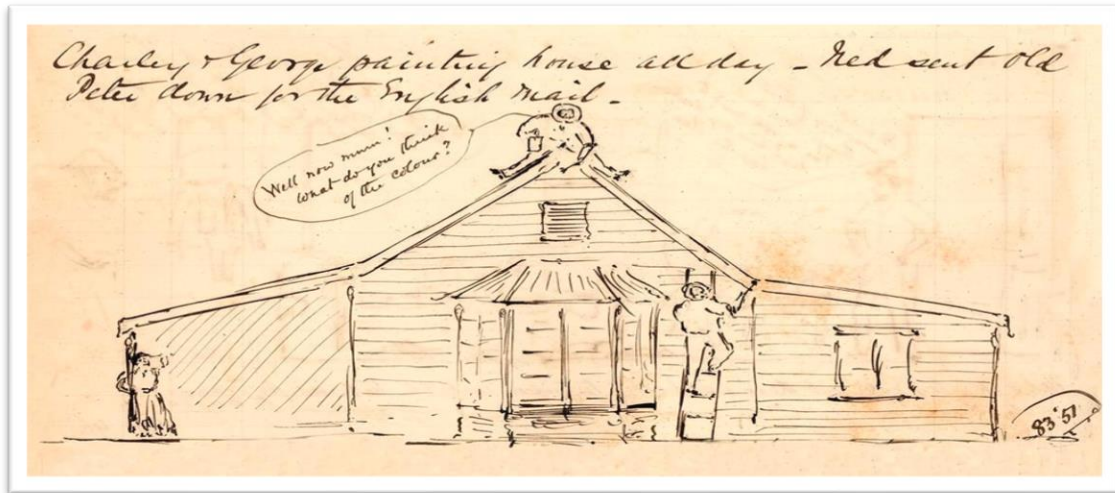 Charley & George painting house all day - Ned sent Old
Peter down for the English Mail -
Well now mum!
what do you think
of the colour?
83°51